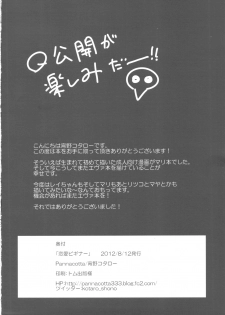 Q公開が
楽しみだー!!
こんにちは宵野コタローです。
この度は本をお手に取って頂きありがとうございます！
そういえば生まれて初めて描いた成人向け漫画がマリ本でした。
そして今こうしてまたエヴァ本を届けていることが
幸せです。
今度はレイちゃんも そしてマリもあとリツコとマヤとかも
描いてみたいな～なんておもってます。
機会があればまたエヴァ本を！
それではありがとうございました！
奥付
「恋愛ビギナー」 2012/8/12発行
Pannacotta/宵野コタロー
印刷/トム出版様
HP/http://pannacotta333.blog.fc2.com/
ツイッター kotaro_shono